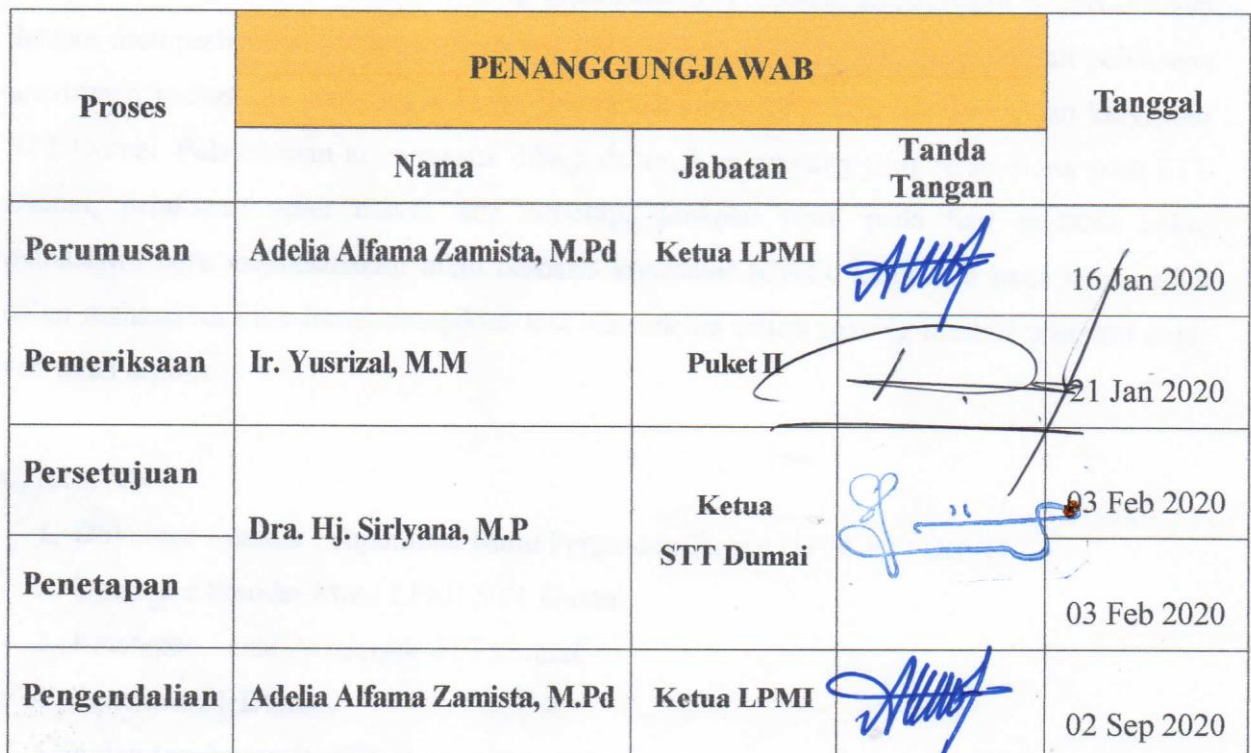 Proses
PENANGGUNGJAWAB
Tanggal
Nama
Jabatan
Tanda
Tangan
Perumusan
Adelia Alfama Zamista, M.Pd
Ketua LPMI
16 Jan 2020
Pemeriksaan
Ir. Yusrizal, M.M
Puket II
21 Jan 2020
Persetujuan
Dra. Hj. Sirlyana, M.P
Ketua
STT Dumai
03 Feb 2020
Penetapan
03 Feb 2020
Pengendalian
Adelia Alfama Zamista, M.Pd
Ketua LPMI
02 Sep 2020